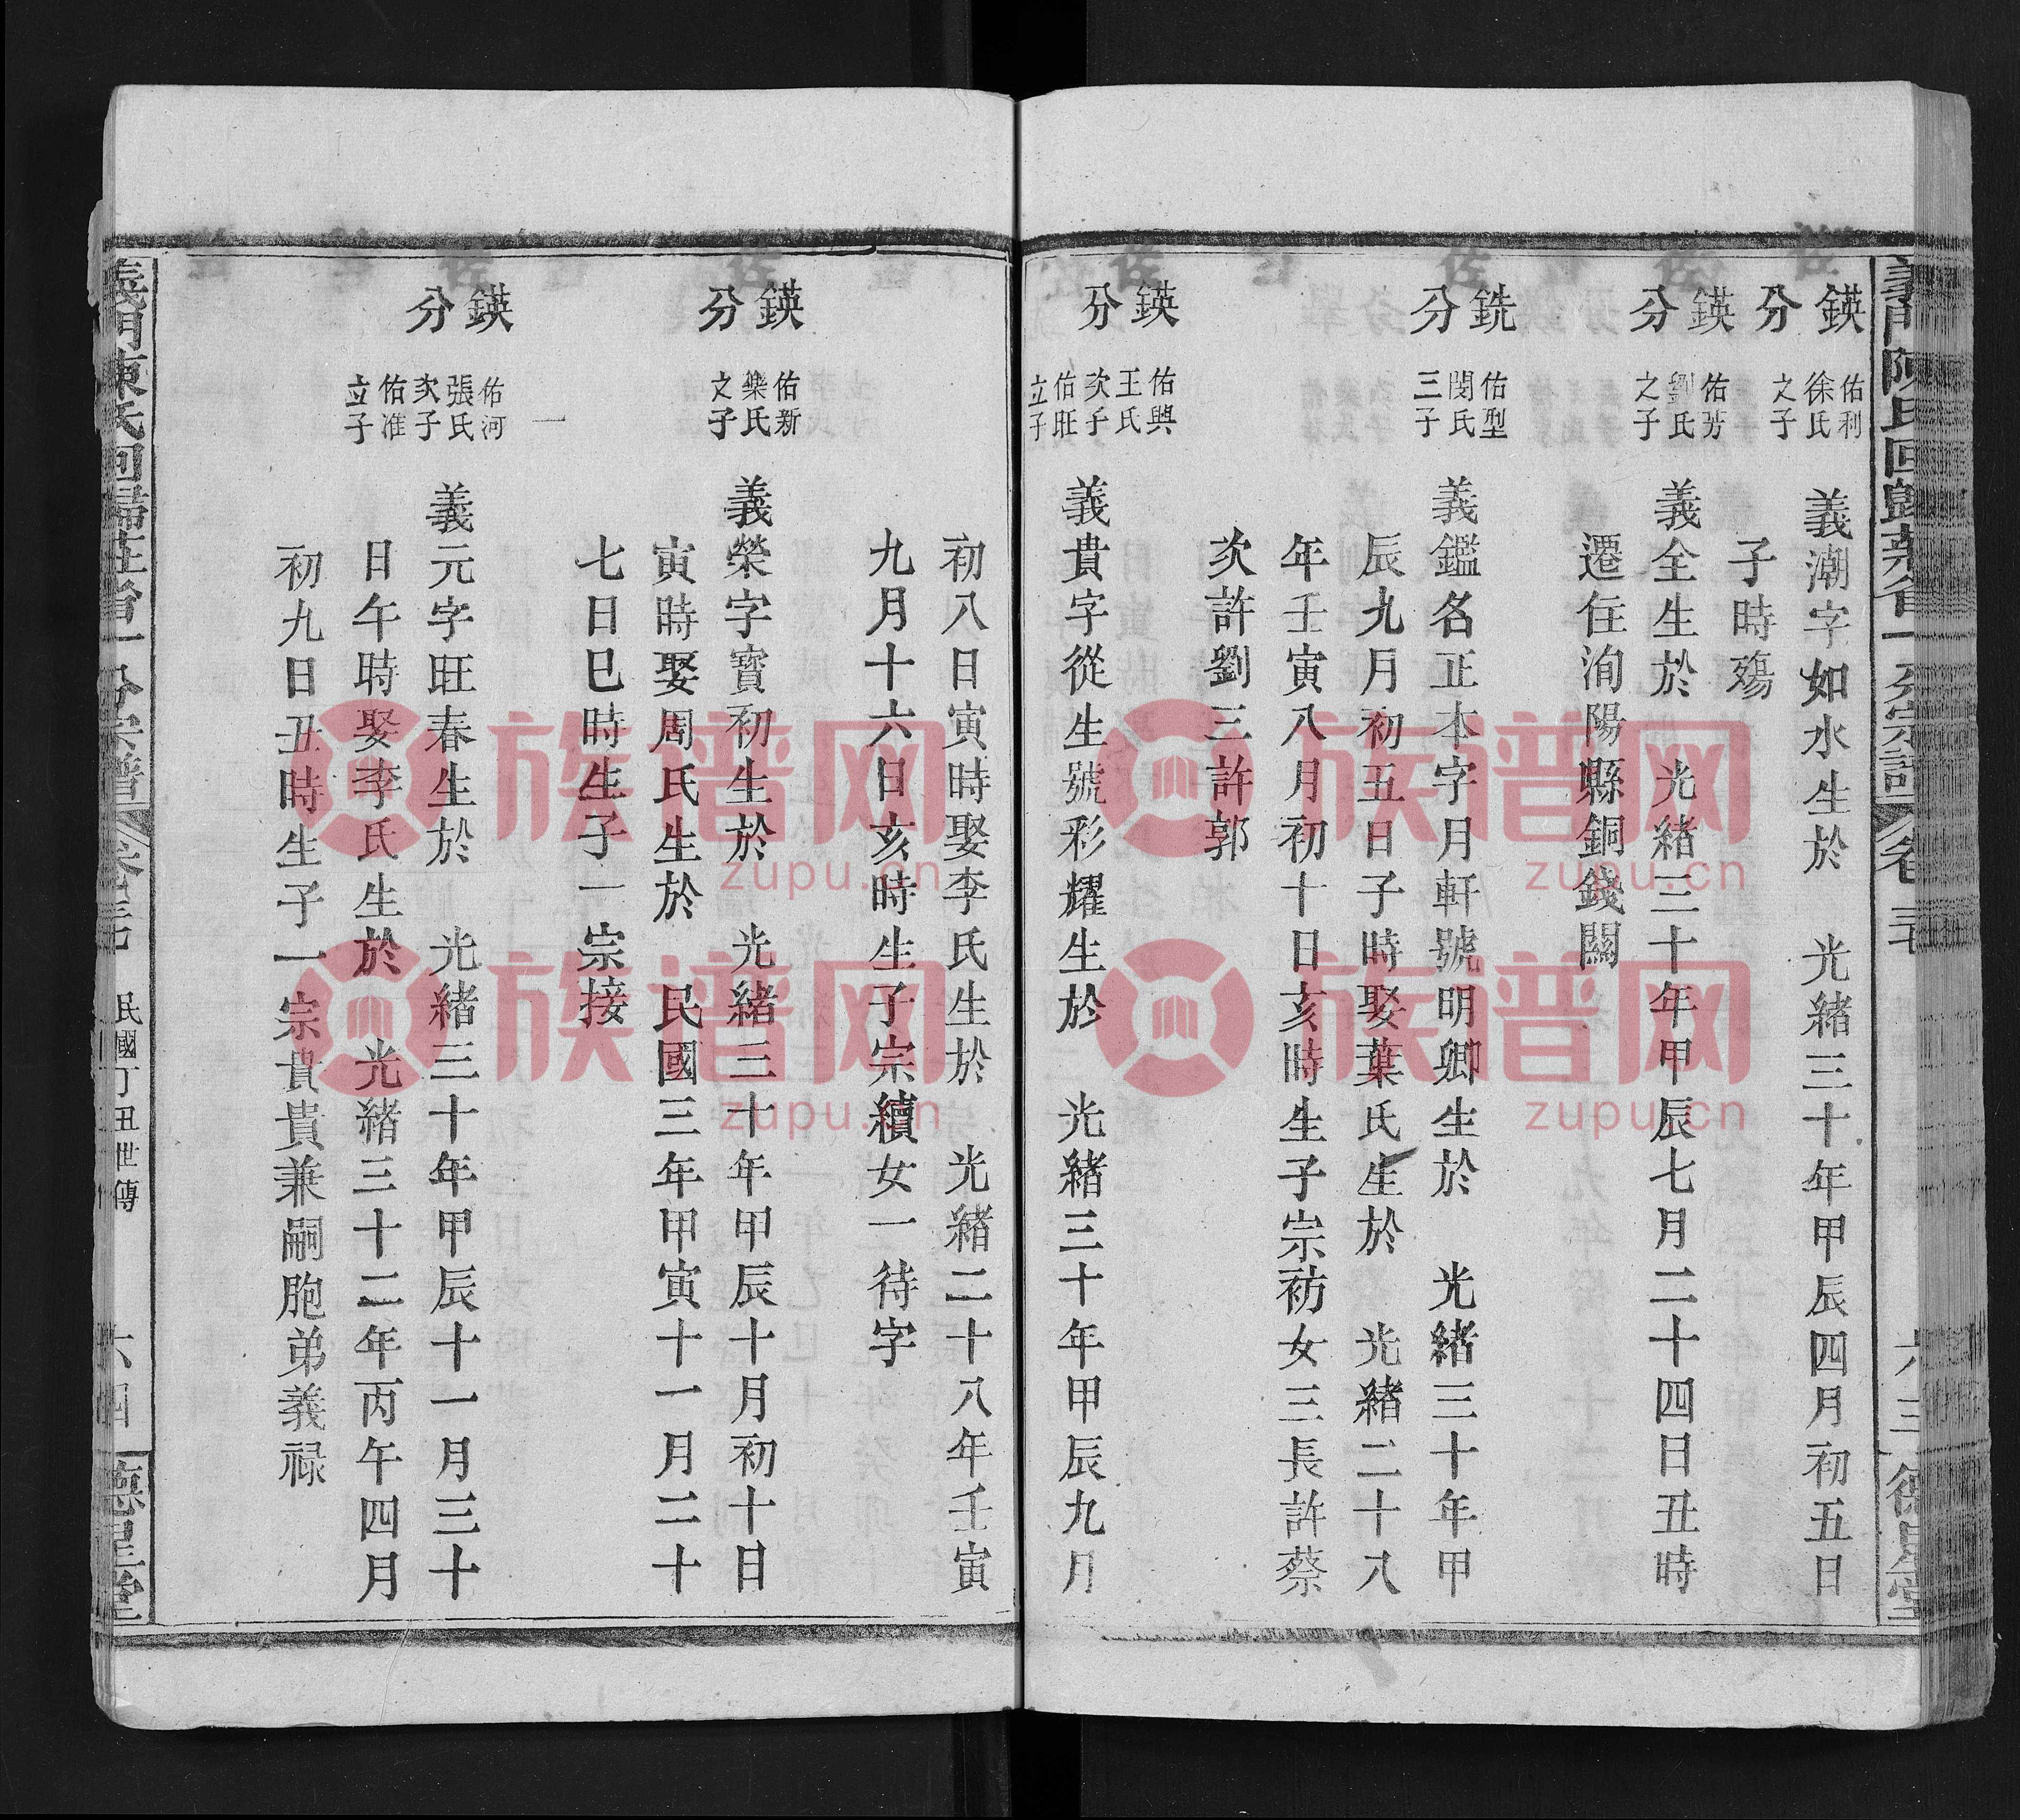 鍈分
佑利
徐氏
之子
義潮字如水生於 光緒三十年甲辰四月初五日
子時殤
鍈分
佑芳
劉氏
之子
義全生於 光緒三十年甲辰七月二十四日丑時
遷住洵陽縣銅錢關
銑分
佑型
閔氏
三子
義鑑名正本字月軒號明卿生於 光緒三十年甲
辰九月初五日子時娶葉氏生於 光緒二十八
年壬寅八月初十日亥時生子宗祊女三長許蔡
次許劉三許郭
鍈分
佑興
王氏
次子
佑旺
立子
義貴字從生號彩耀生於 光緒三十年甲辰九月
初八日寅時娶李氏生於 光緒二十八年壬寅
九月十六日亥時生子宗續女一待字
鍈分
佑新
樂氏
之子
義榮字寶初生於 光緒三十年甲辰十月初十日
寅時娶周氏生於 民國三年甲寅十一月二十
七日巳時生子一宗接
鍈分
佑河
張氏
次子
佑准
立子
義元字旺春生於 光緒三十年甲辰十一月三十
日午時娶李氏生於 光緒三十二年丙午四月
初九日丑時生子一宗貴貴兼嗣胞弟義祿
義門陳氏回歸莊省一分宗譜
民國丁丑世傳
六四
德星堂
族谱网
zupu.cn
族谱网
zupu.cn
族谱网
zupu.cn
族谱网
zupu.cn